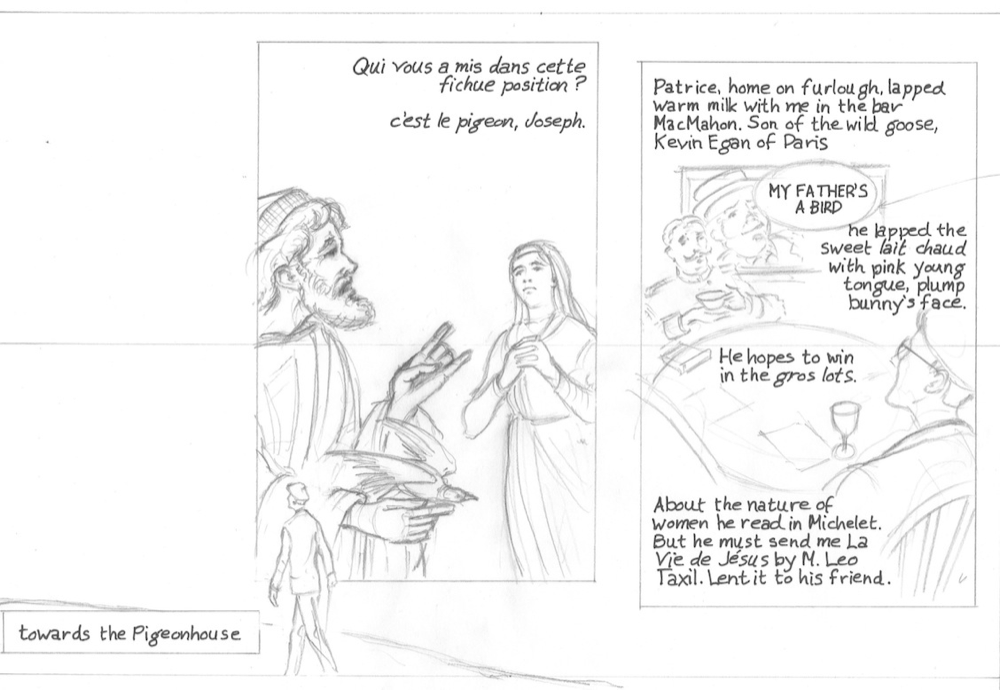 Qui vous a mis dans cette
fichue position?
c'est le pigeon, Joseph.
Patrice, home on furlough, lapped
warm milk with me in the bar
MacMahon. Son of the wild goose,
Kevin Egan of Paris
MY FATHER'S
A BIRD
he lapped the
sweet lait chaud
with pink young
tongue, plump
bunny's face.
He hopes to win
in the gros lots.
About the nature of
women he read in Michelet.
But he must send me La
Vie de Jésus by M. Leo
Taxil. Lent it to his friend.
towards the Pigeonhouse